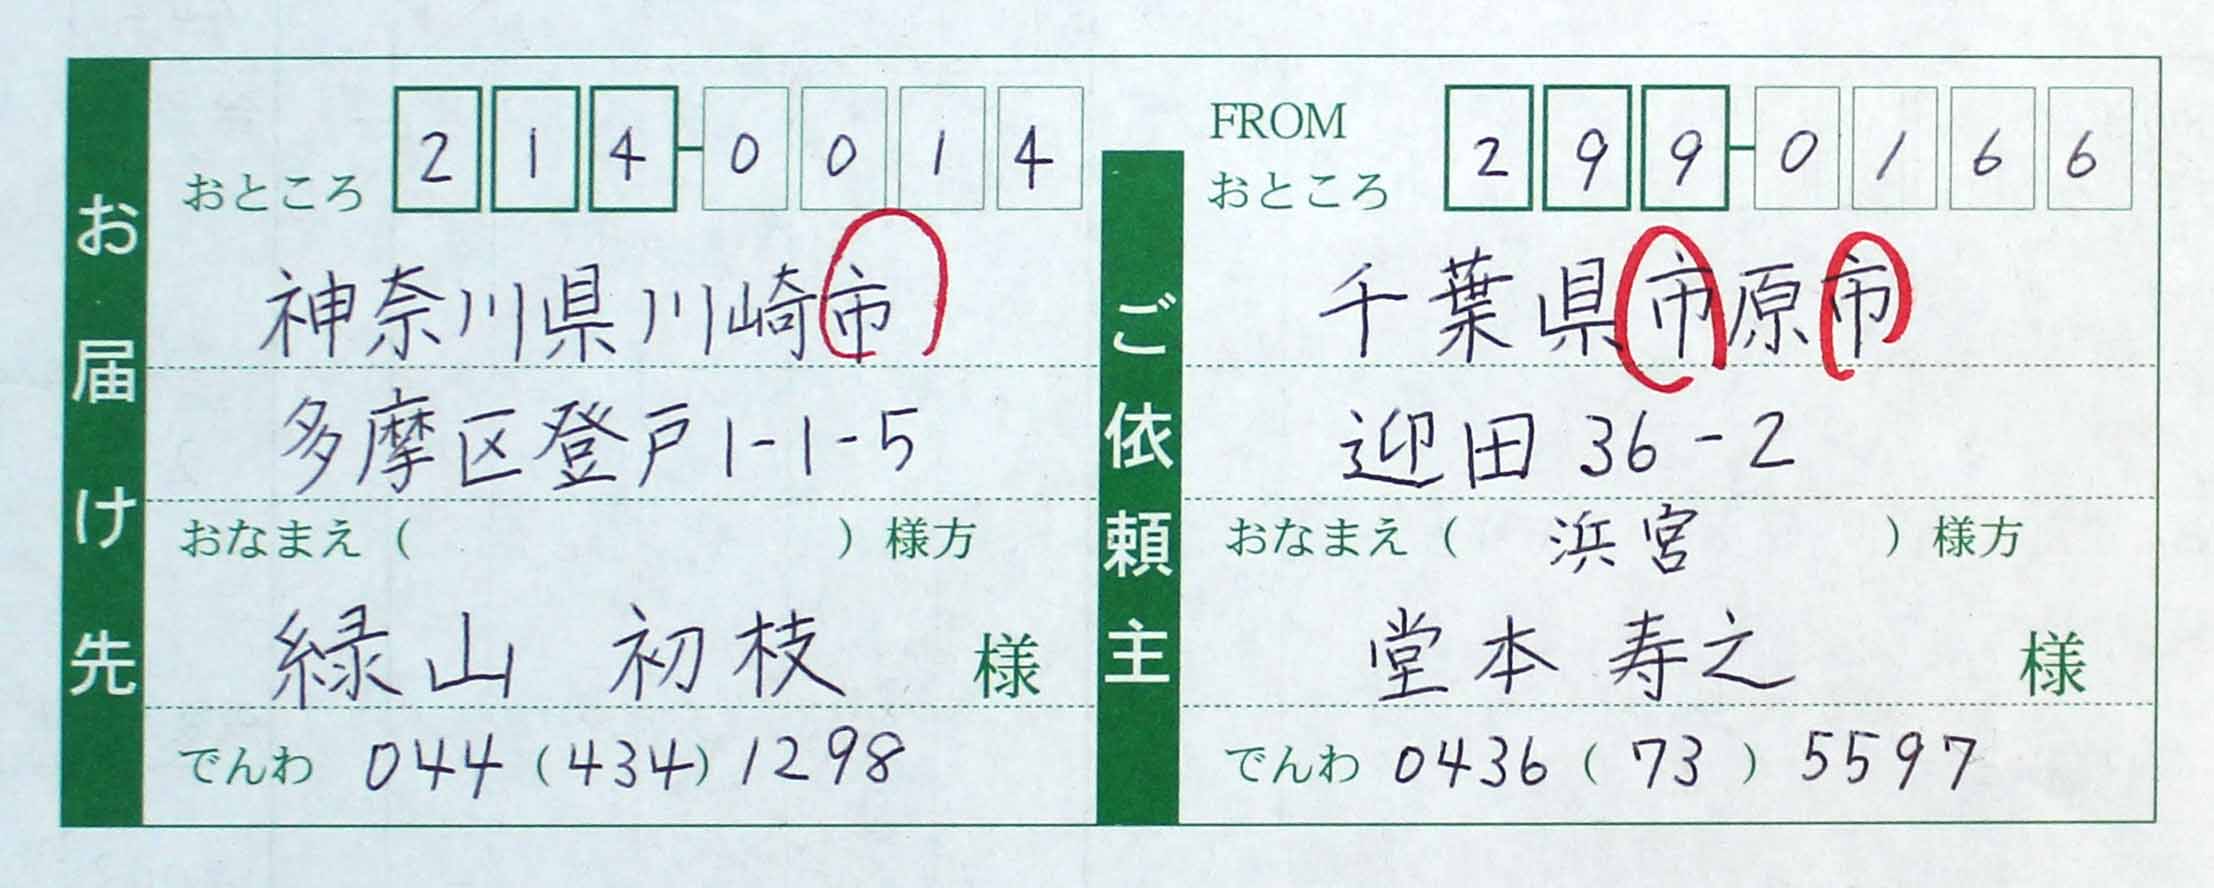 お届け先
おところ 214-0014
神奈川県川崎市
多摩区登戸1-1-5
おなまえ( )様方
緑山 初枝 様
でんわ 044(434)1298
ご依頼主
FROM
おところ 299-0166
千葉県市原市
迎田36-2
おなまえ(浜宮)様方
堂本 寿之 様
でんわ 0436(73)5597